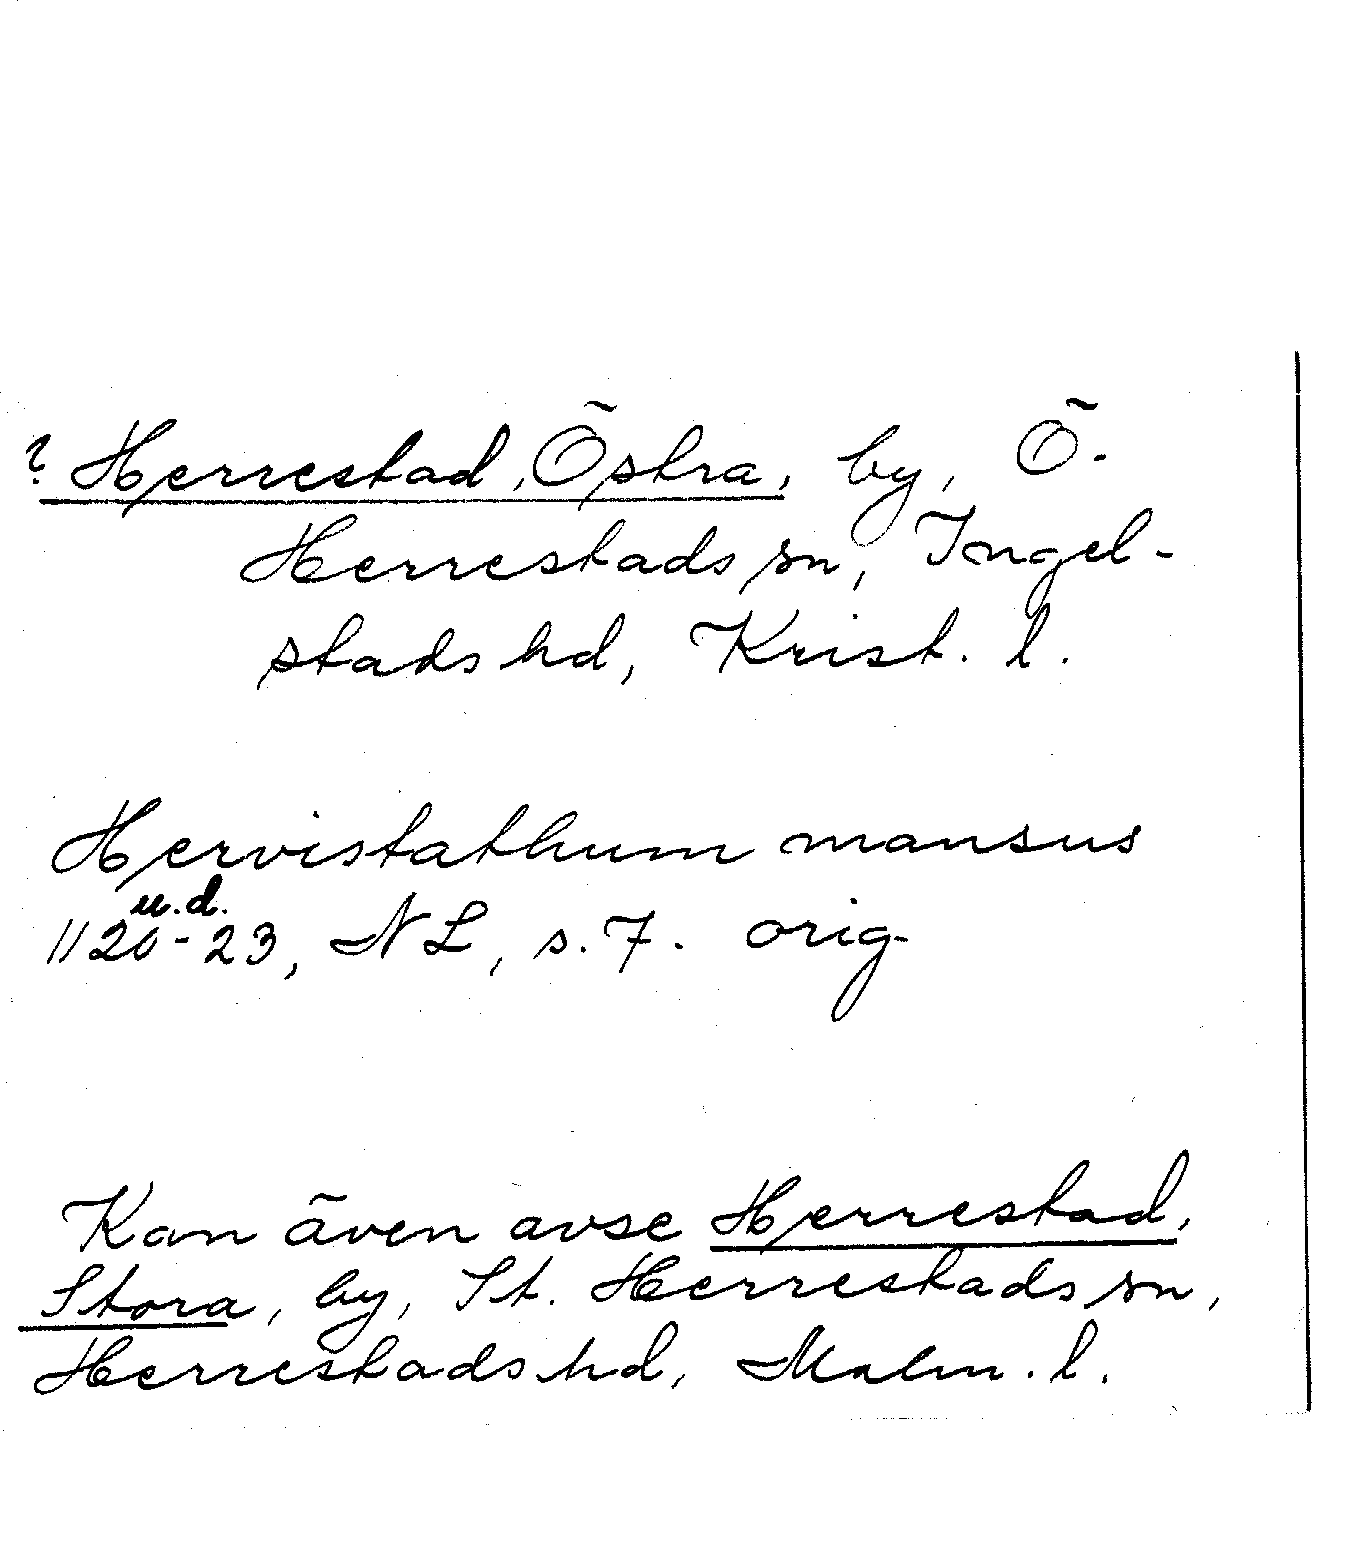 ? Herrestad, Östra, by, Ö.
Herrestads sn, Ingel-
stads hd, Krist. l.
Hervistathum mansus
u.d.
1120-23, NL, s. 7. orig.
Kan även avse Herrestad,
Stora, by, St. Herrestads sn,
Herrestads hd, Malm. l.